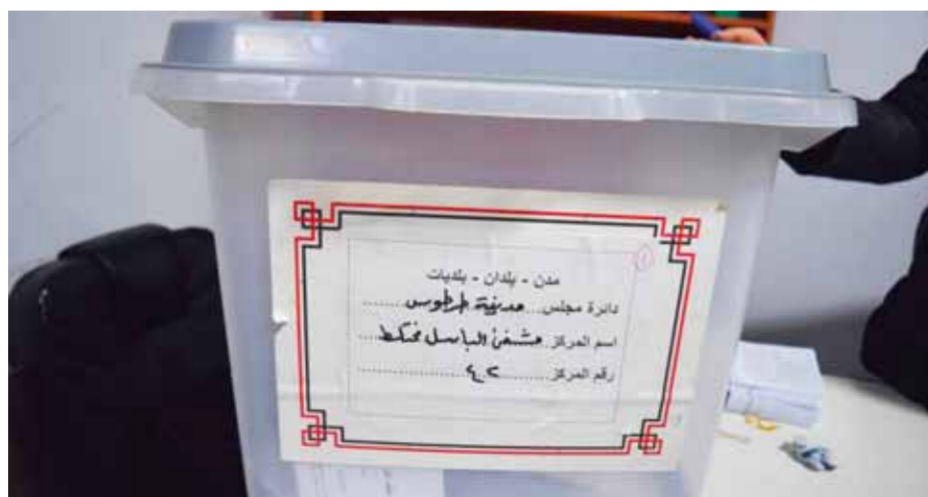 مدن - بلدان - بلديات
دائرة مجلس ... مدينة طرطوس ........
اسم المركز .. مشفى الباسل مختلط ....
رقم المركز ........ ٤٢ ................